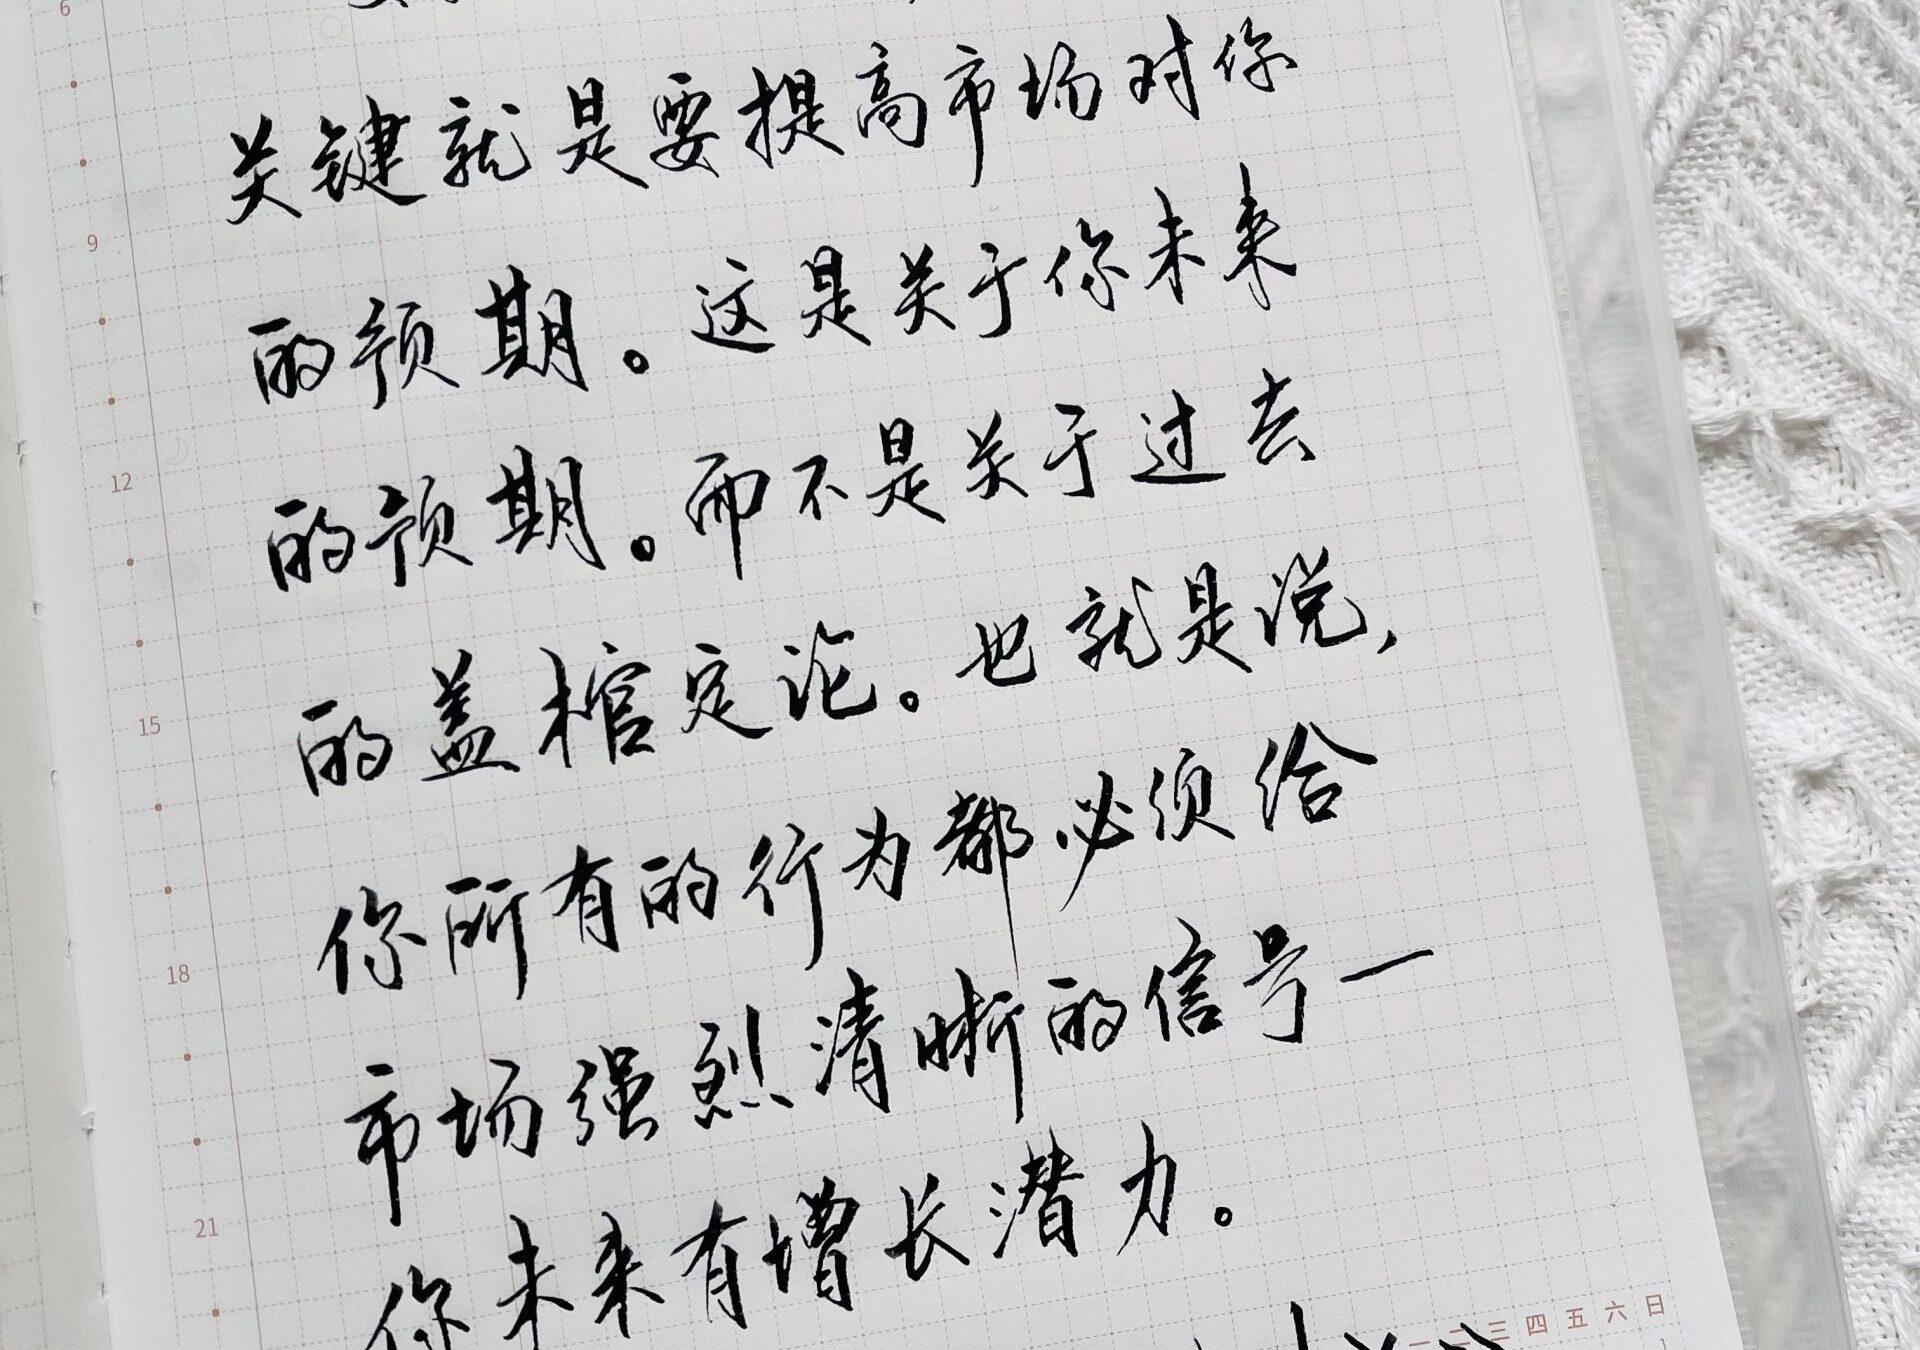 6
关键就是要提高市场对你
9
的预期。这是关于你未来
的预期。而不是关于过去
12
的盖棺定论。也就是说,
15
你所有的行为都必须给
18
市场强烈清晰的信号一
21
你未来有增长潜力。
一 二 三 四 五 六 日
1